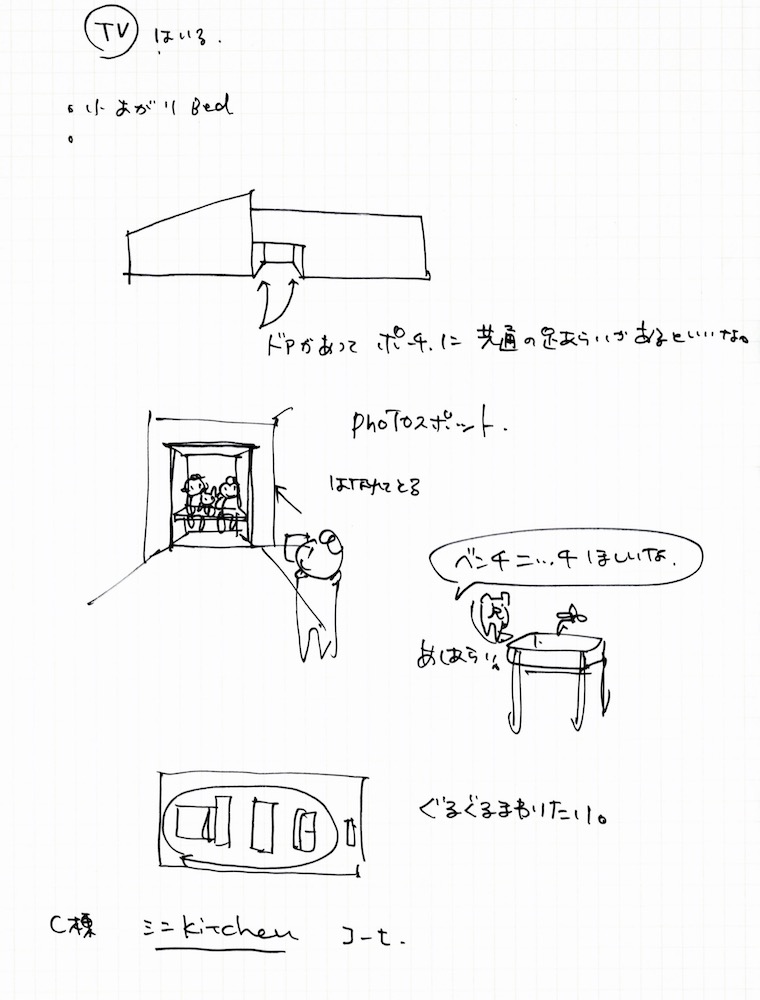 TV はいる.
・小あがり Bed
・
ドアがあって ポーチ.に 共通の足あらいが あるといいな。
Photoスポット.
はなれてとる
ベンチニ...チ ほしいな.
あしあらい。
ぐるぐるまわりたい。
C棟 ミニ kitchen コート.